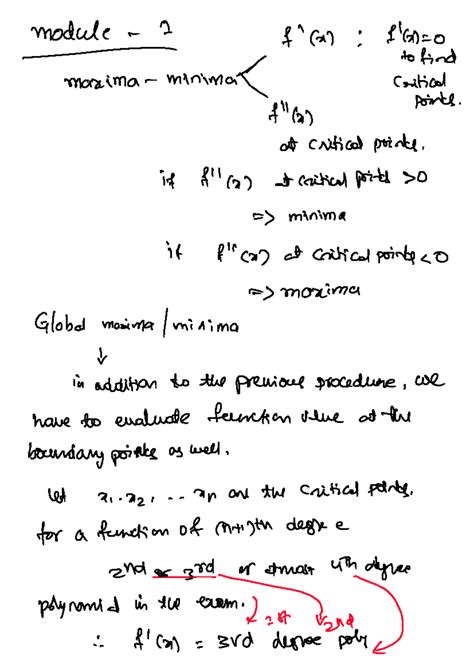 module - 1
maxima - minima
f'(x) : f'(x)=0
to find
critical
points.
f''(x)
at critical points.
if f''(x) at critical points >0
=> minima
if f''(x) at critical points <0
=> maxima
Global maxima / minima
↓
in addition to the previous procedure, we
have to evaluate function value at the
boundary points as well.
let x1, x2, ... xn are the critical points.
for a function of (n+1)th degree
2nd or 3rd or atmost 4th degree
polynomial in the exam. 1st 2nd
∴ f'(x) = 3rd degree poly